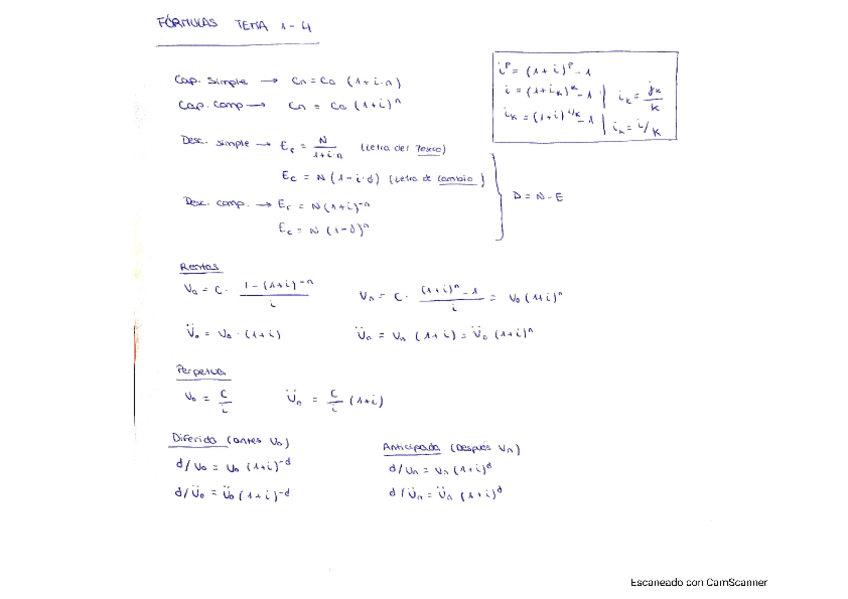 FÓRMULAS TEMA 1-4
Cap. Simple → Cn = Co (1+i·n)
Cap. Comp → Cn = Co (1+i)^n
i^p = (1+i)^p - 1
i = (1+i_k)^k - 1 | i_k = j_k/k
i_k = (1+i)^1/k - 1 | i_k = i/k
Desc. simple → E_r = N/(1+i·n) (Letra del Tesoro)
E_c = N (1-i·d) (Letra de cambio)
Desc. comp. → E_r = N (1+i)^-n
E_c = N (1-d)^n
D = N-E
Rentas
V_0 = C · (1-(1+i)^-n)/i
V_n = C · ((1+i)^n - 1)/i = V_0 (1+i)^n
V̈_0 = V_0 · (1+i)
V̈_n = V_n (1+i) = V̈_0 (1+i)^n
Perpetua
V_0 = C/i
V̈_n = C/i (1+i)
Diferida (antes V_0)
d/V_0 = V_0 (1+i)^-d
d/V̈_0 = V̈_0 (1+i)^-d
Anticipada (Después V_n)
d/V_n = V_n (1+i)^d
d/V̈_n = V̈_n (1+i)^d
Escaneado con CamScanner